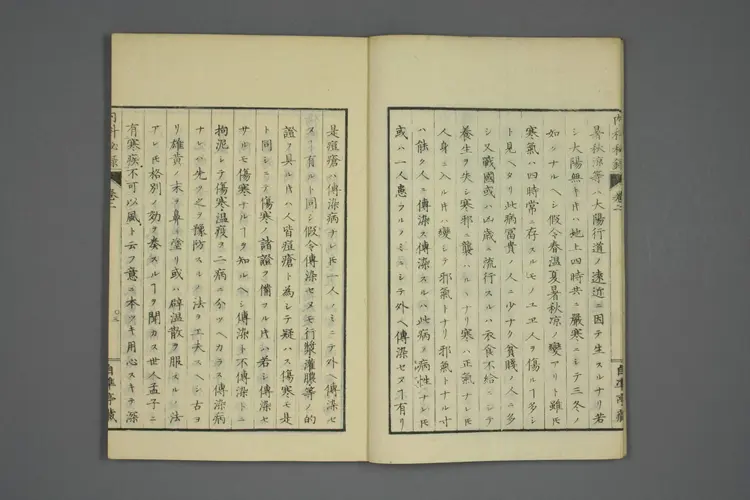 暑秋凉等ハ大陽行道ノ遠近ニ因テ生スルナリ若
シ大陽無キ片ハ地上四時共ニ嚴寒ニシテ三冬ノ
如シナルヘシ假令春温夏暑秋凉ノ變アリト雖𪜈
寒氣ハ四時常ニ存スルモノユヱ人ヲ傷ルヿ多シ
ト見ヘタリ此病冨貴ノ人ニ少ナク貧賤ノ人ニ多
シ又戰國或ハ凶歳ニ流行スルハ衣食不給ニシテ
養生ヲ失シ寒邪ニ襲ハルヽナリ寒ハ正氣ナレ𪜈
人身ニ入ル片ハ變シテ邪氣トナリ邪氣トナル寸
ハ能ク人ニ傳染ス傳染スルハ此病ノ病性ナレ𪜈
或ハ一人患フルノミニシテ外ヘ傳染セヌヿ有リ
內科秘錄 卷二
自準亭藏
是痘瘡ハ傳染病ナレ𪜈一人ノミニテ外ヘ傳染セ
ヌヿ有ルト同シ假令傳染セヌモ行漿灌膿等ノ的
證ヲ具ル片ハ人皆痘瘡ト為シテ疑ハス傷寒モ是
ト同シヿニテ傷寒ノ諸證ヲ備フル片ハ若シ傳染セ
サルモ傷寒ナルヿヲ知ルヘシ傳染ト不傳染トニ
拘泥シテ傷寒温疫ヲ二病ニ分ツヘカラス傳染病
ナレハ先ツ之ヲ豫防スルノ法ヲ工夫スヘシ古ヨ
リ雄黄ノ末ヲ鼻ニ塗リ或ハ辟温散ヲ服モノ法
アレ𪜈格別ノ効ヲ奏スルヿヲ聞カス世人孟子ニ
有寒疾不可以風ト云フ意ニ本ツキ用心スキテ深
內科秘錄 卷二
自準亭藏